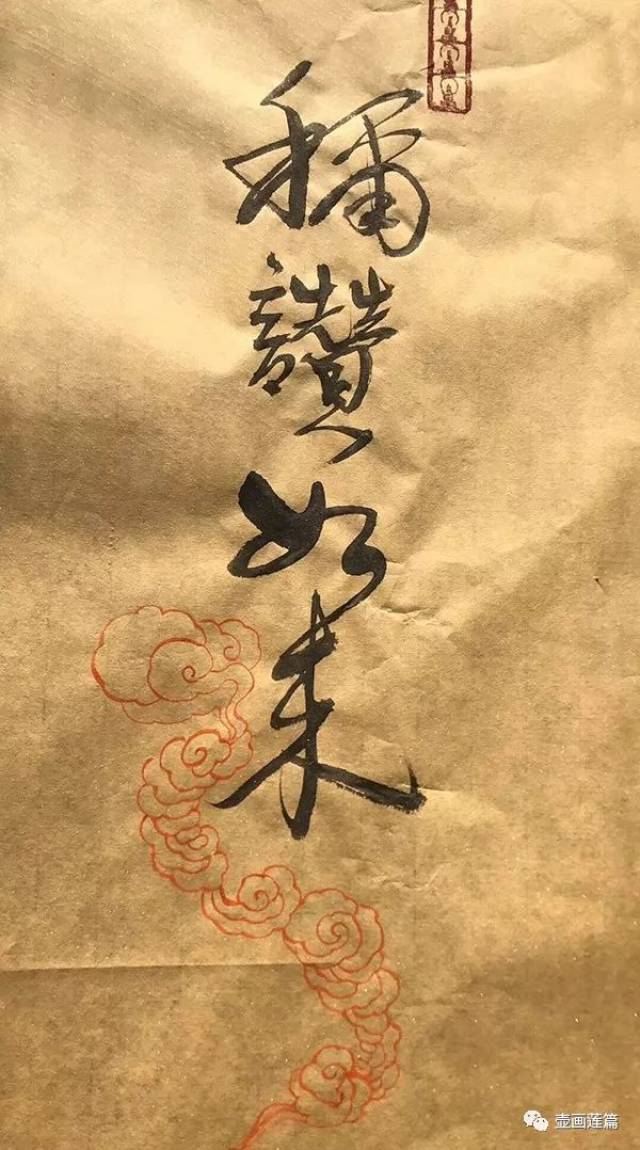 稱讚如来
壶画莲篇